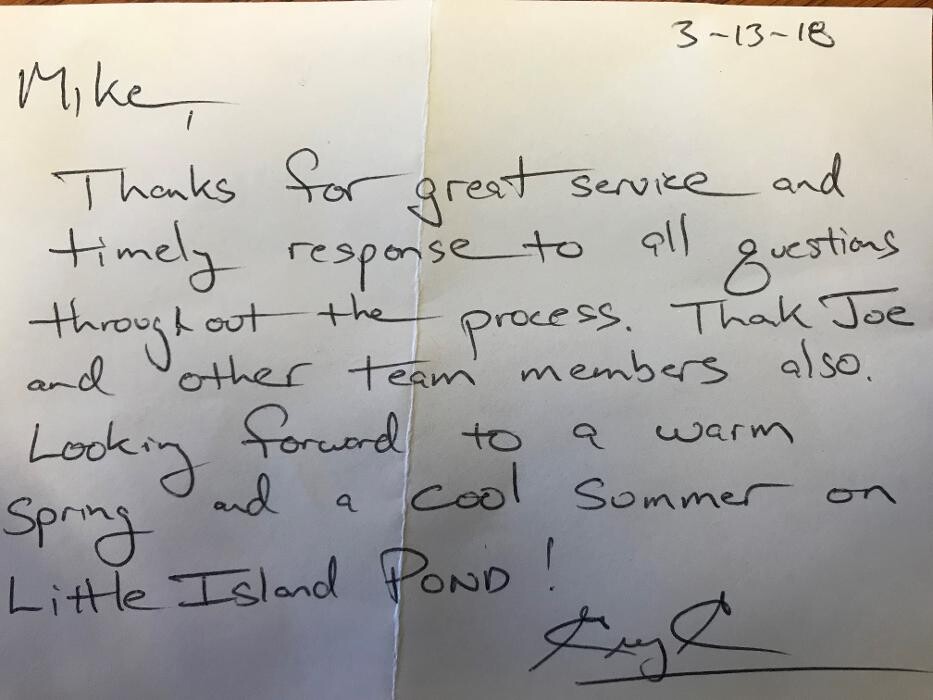 3-13-18
Mike,
Thanks for great service and
timely response to all questions
throughout the process. Thak Joe
and other team members also.
Looking forward to a warm
Spring and a cool Summer on
Little Island POND!